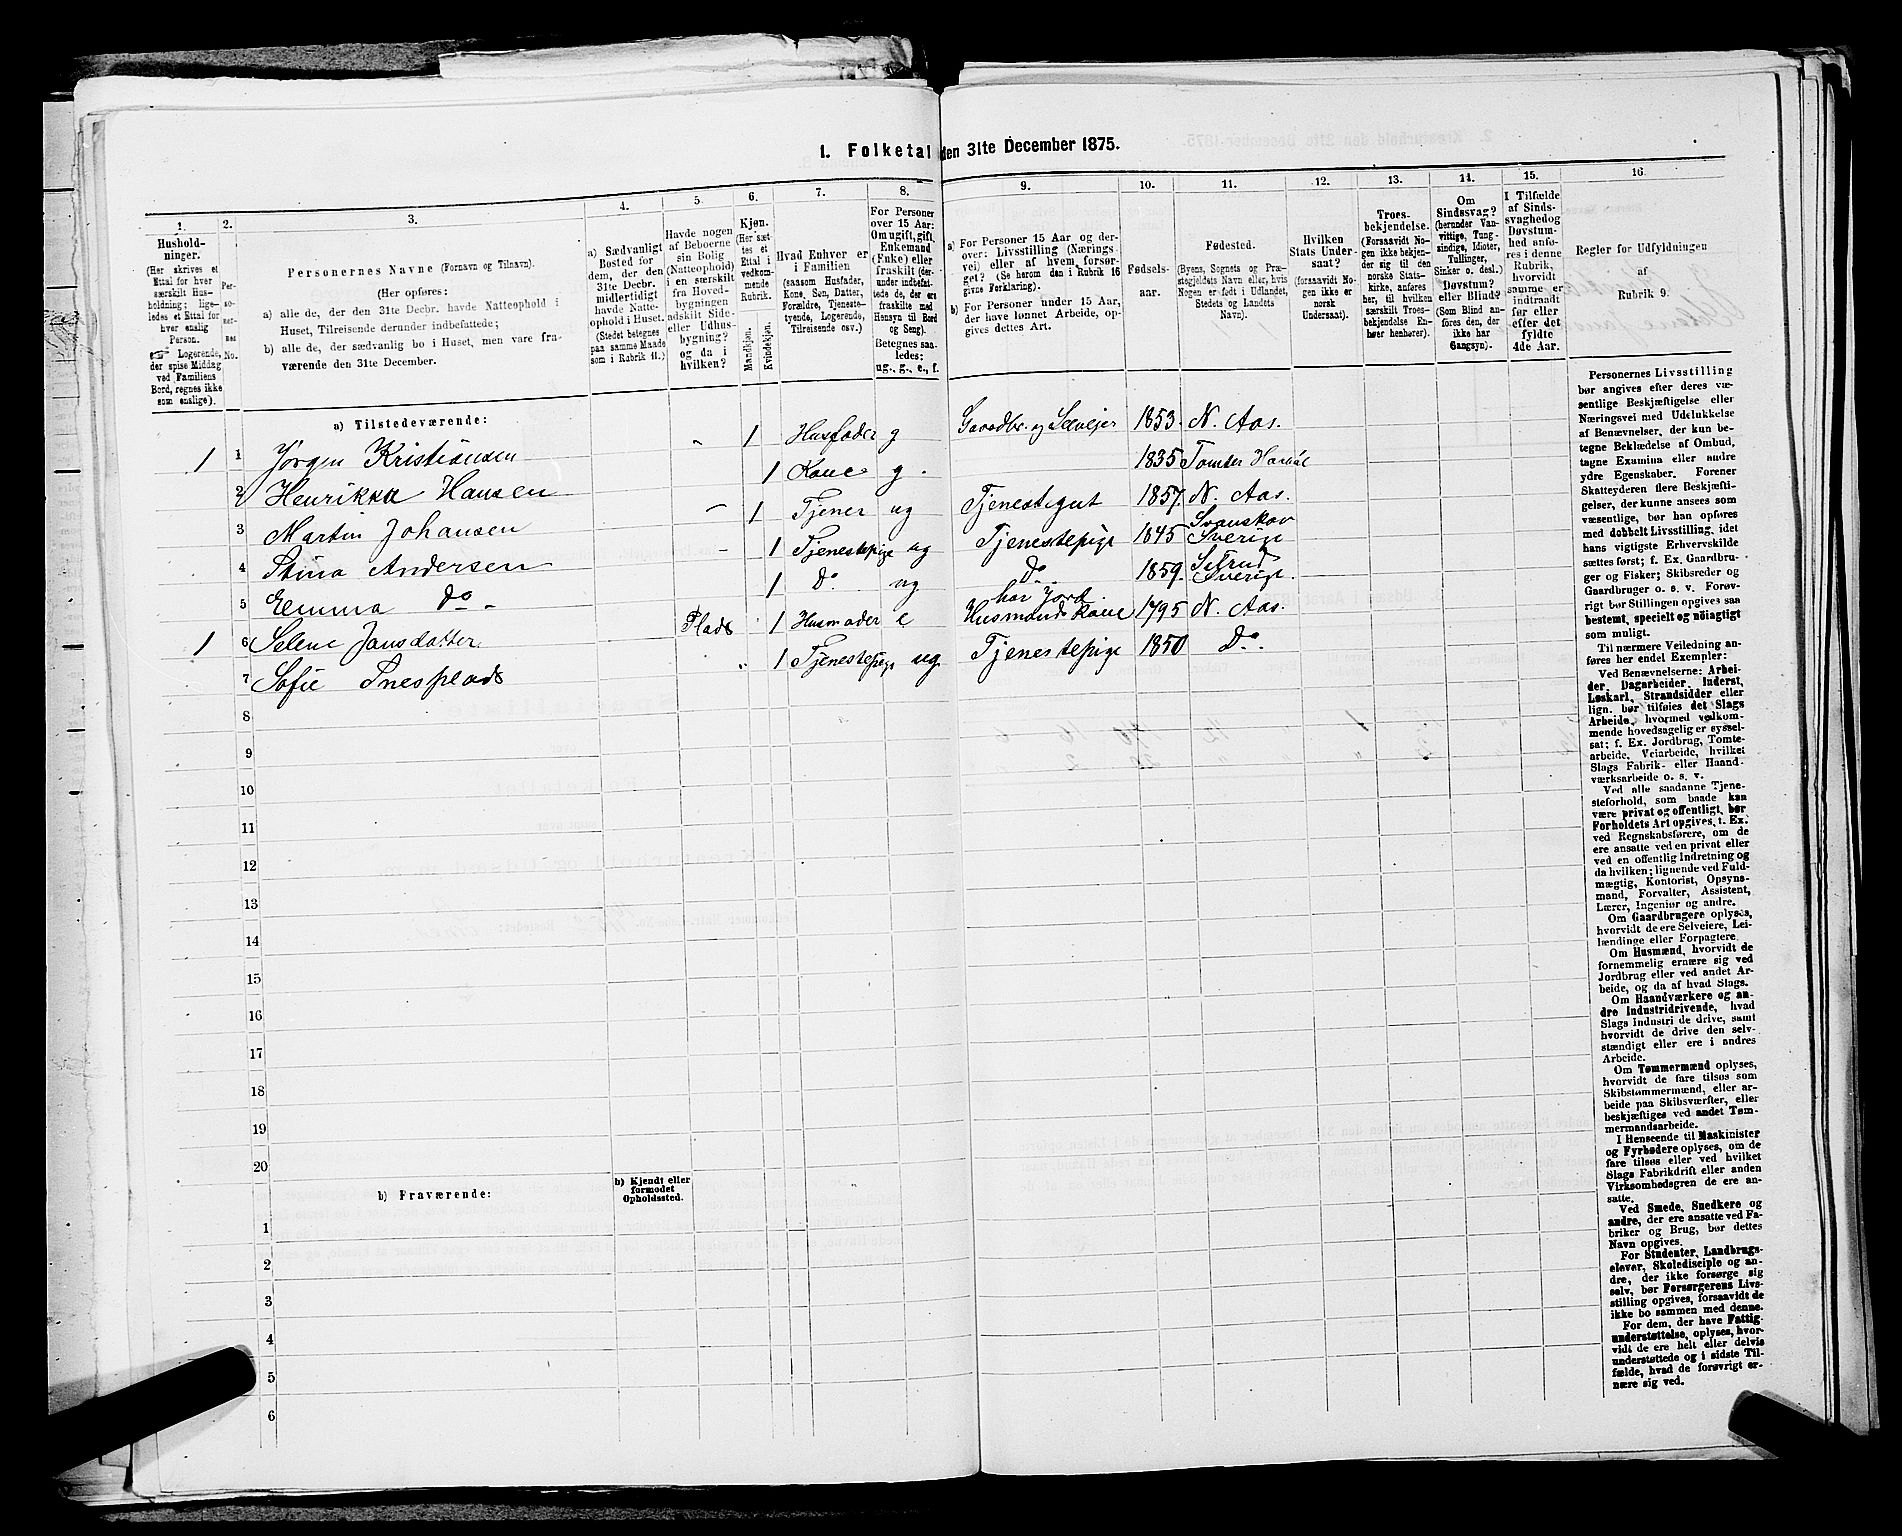 1. Folketal den 31te December 1875.
1. 2. 3. 4. 5. 6. 7. 8. 9. 10. 11. 12. 13. 14. 15. 16
Husholdninger.
(Her skrives et
Ettal for hver
særskilt Husholdning;
ligeledes
et Ettal for
hver enslig
Person.
Logerende,
der spise Middag
ved Familiens
Bord, regnes ikke
som enslige).
Personernes No.
Personernes Navne (Fornavn og Tilnavn).
(Her opføres:
a) alle de, der den 31te Decbr. havde Natteophold i
Huset, Tilreisende derunder indbefattede;
b) alle de, der sædvanlig bo i Huset, men vare fraværende
den 31te December.
a) Sædvanligt
Bosted for
dem, der den
31te Decbr.
midlertidigt
havde Natteophold
i Huset.
(Stedet betegnes
paa samme Maade
som i Rubrik 11.)
Havde nogen
af Beboerne
sin Bolig
(Natteophold)
i en særskilt
fra Hovedbygningen
adskilt Side-
eller Udhusbygning?
og da i
hvilken?
Kjøn.
(Her sættes
et
Ettal i
vedkommende
Rubrik.
Mandkjøn.
Kvindekjøn.
Hvad Enhver er
i Familien
(saasom Husfader,
Kone, Søn, Datter,
Forældre, Tjenestetyende,
Logerende,
Tilreisende osv.)
For Personer
over 15 Aar:
Om ugift, gift,
Enkemand
(Enke) eller
fraskilt (derunder
indbefattede
de, der ere
fraskilte med
Hensyn til Bord
og Seng).
Betegnes saaledes:
ug., g., e., f.
a) For Personer 15 Aar og derover:
Livsstilling (Næringsvei)
eller af hvem forsørget?
(Se herom den i Rubrik 16
givne Forklaring).
b) For Personer under 15 Aar,
der have lønnet Arbeide, opgives
dettes Art.
Fødselsaar.
Fødested.
(Byens, Sognets og Præstegjeldets
Navn eller, hvis
Nogen er født i Udlandet,
Stedets og Landets
Navn).
Hvilken
Stats Undersaat?
(forsaavidt Nogen
ikke er
norsk
Undersaat).
Troesbekjendelse.
(Forsaavidt Nogen
ikke bekjender
sig til den
norske Statskirke,
anføres
her, til hvilken
særskilt Troesbekjendelse
Enhver
henhører).
Om
Sindssvag?
(herunder Vanvittige,
Tungsindige,
Idioter,
Tullinger,
Sinker o. desl.)
Døvstum?
eller Blind?
(Som Blind anføres
den, der
ikke har
Gangsyn).
I Tilfælde
af Sindssvaghed
og
Døvstumhed
anføres
i denne
Rubrik,
hvorvidt
samme er
indtraadt
før eller
efter det
fyldte
4de Aar.
Regler for Udfyldningen
af
Rubrik 9.
a) Tilstedeværende:
1 1 Jørgen Kristiansen - 1 Husfader g Gaardbr. og Selveier 1853. N. Aas.
2 Henrikka Hansen 1 Kone g. 1835 Tomter
3 Martin Johansen - 1 Tjener ug Tjenestegut 1857. N. Aas.
4 Stina Andersen - 1 Tjenestepige ug Tjenestepige 1845 Svanskov Sverige
5 Emma Do - 1 Do. ug Do. 1859. Sverige.
1 6 Selene Jansdatter Plads 1 Husmoder e Husmands kone har Jord 1795 N. Aas.
7 Sofie " 1 Tjenestepige ug. Tjenestepige 1850 Do.
8
9
10
11
12
13
14
15
16
17
18
19
20
b) Fraværende:
b) Kjendt eller
formodet
Opholdssted.
1
2
3
4
5
6
Personernes Livsstilling
bør angives efter deres væsentlige
Beskjæftigelse eller
Næringsvei med Udelukkelse
af Benævnelser, der kun betegne
Beklædelse af Ombud,
tagne Examina eller andre
ydre Egenskaber. Forener
Skatteyderen flere Beskjæftigelser,
der kunne ansees som
væsentlige, bør han opføres
med dobbelt Livsstilling, idet
hans vigtigste Erhvervskilde
sættes først; f. Ex. Gaardbruger
og Fisker; Skibsreder og
Gaardbruger o. s. v. Forøvrigt
bør Stillingen opgives saa
bestemt, specielt og nöiagtigt
som muligt.
Til nærmere Veiledning anføres
her endel Exempler:
Ved Benævnelserne: Arbeider,
Dagarbeider, Inderst,
Løskarl, Strandsidder eller
lign. bør tilføies det Slags
Arbeide, hvormed vedkommende
hovedsagelig er sysselsat;
f. Ex. Jordbrug, Tomtearbeide,
Veiarbeide, hvilket
Slags Fabrik- eller Haandværksarbeide
o. s. v.
Ved alle saadanne Tjenesteforhold,
som baade kan
være privat og offentligt, bør
Forholdets Art opgives, f. Ex.
ved Regnskabsførere, om de
ere ansatte ved en privat eller
ved en offentlig Indretning og
da hvilken; lignende ved Fuldmægtig,
Kontorist, Opsynsmand,
Forvalter, Assistent,
Lærer, Ingeniør og andre.
Om Gaardbrugere oplyses,
hvorvidt de ere Selveiere, Leilændinge
eller Forpagtere.
Om Husmænd, hvorvidt de
fornemmelig ernære sig ved
Jordbrug eller ved andet Arbeide,
og da af hvad Slags.
Om Haandværkere og andre
Industridrivende, hvad
Slags Industri de drive, samt
hvorvidt de drive den selvstændigt
eller ere i andres
Arbeide.
Om Tømmermænd oplyses,
hvorvidt de fare tilsøs som
Skibstømmermænd, eller arbeide
paa Skibsværfter, eller
beskjæftiges ved andet Tømmermandsarbeide.
I Henseende til Maskinister
og Fyrbødere oplyses, om de
fare tilsøs eller ved hvilket
Slags Fabrikdrift eller anden
Virksomhedsgren de ere ansatte.
Ved Smede, Snedkere og
andre, der ere ansatte ved Fabriker
og Brug, bør dettes
Navn opgives.
For Studenter, Landbrugselever,
Skoledisciple og andre,
der ikke forsørge sig
selv, bør Forsørgerens Livsstilling
opgives, forsaavidt de
ikke bo sammen med denne.
For dem, der have Fattigunderstøttelse,
oplyses, hvorvidt
de ere helt eller delvis
understøttede og i sidste Tilfælde,
hvad de forøvrigt ernære
sig ved.